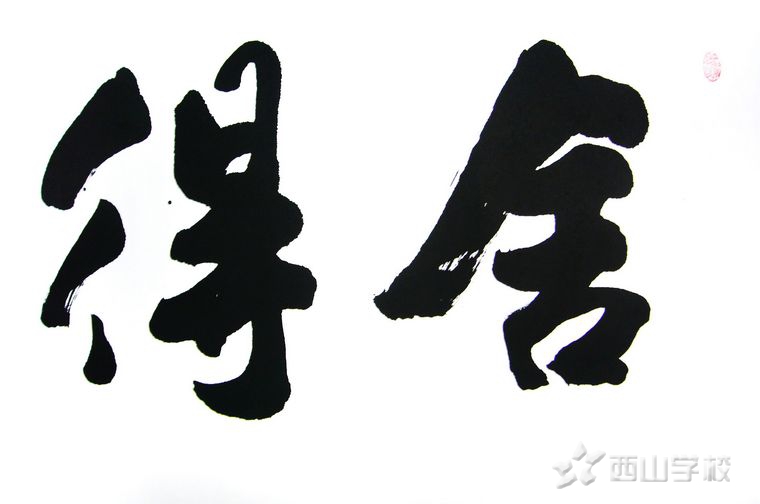 舍得
西山学校